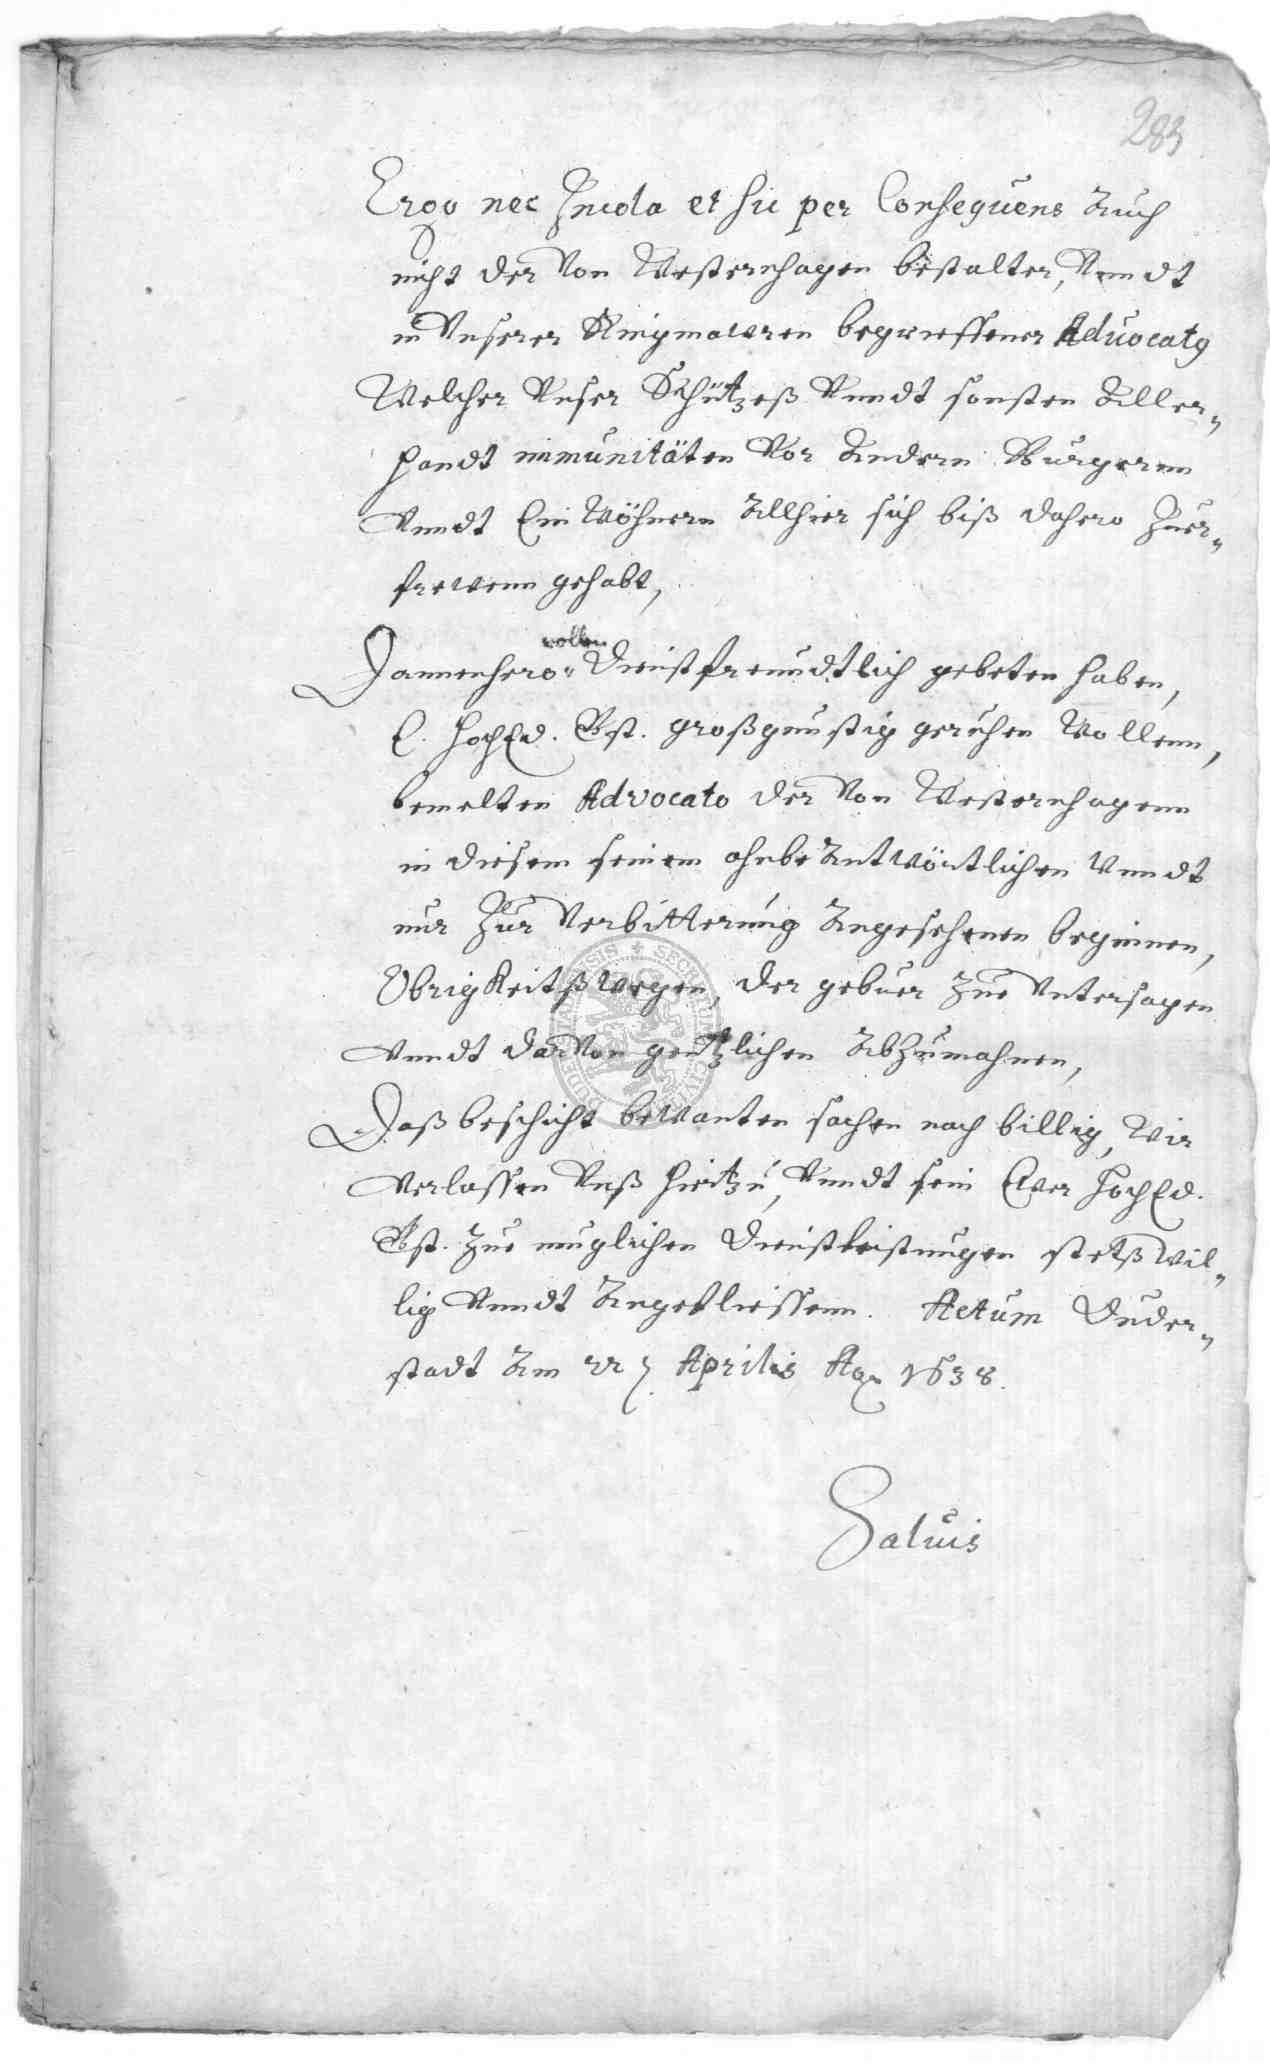 283
Ergo nec Incola et sic per Consequens Auch
nicht der Von Westernhagen bestalter, Vnndt
in Vnserer Ringmawren begrieffener Aduocatq
Welcher Vnser Schützeß Vnndt sonsten Aller„
handt immunitäten Vor Andern Burgernn
Vnndt Einwöhnern Allhier sich biß dahero Zuer„
frewenn gehabt,
wollen
Dannenhero Dienstfreundtlich gebeten haben,
E. HochEd. Gst. großgunstig geruhen Wollenn,
bemelten Advocato der Von Westernhagenn
in diesem seinem ohnbeAntwörtlichen Vnndt
nur Zur Verbitterung Angesehenen beginnen,
Obrigkeitß wegen, der gebuer Zue Vntersagen
Vnndt darVon gentzlichen AbZumahnen,
Daß beschicht bewanten sachen nach billig, Wir
Verlassen Vnß hietzu, Vnndt sein Ewer HochEd.
Gst. Zue muglichen Dienstleistungen stetß wil„
lig Vnndt Angefliessenn. Actum Duder„
stadt Am 22 Aprilis Ao 1638.
Saluis
SECRETUM CIVI BUDE